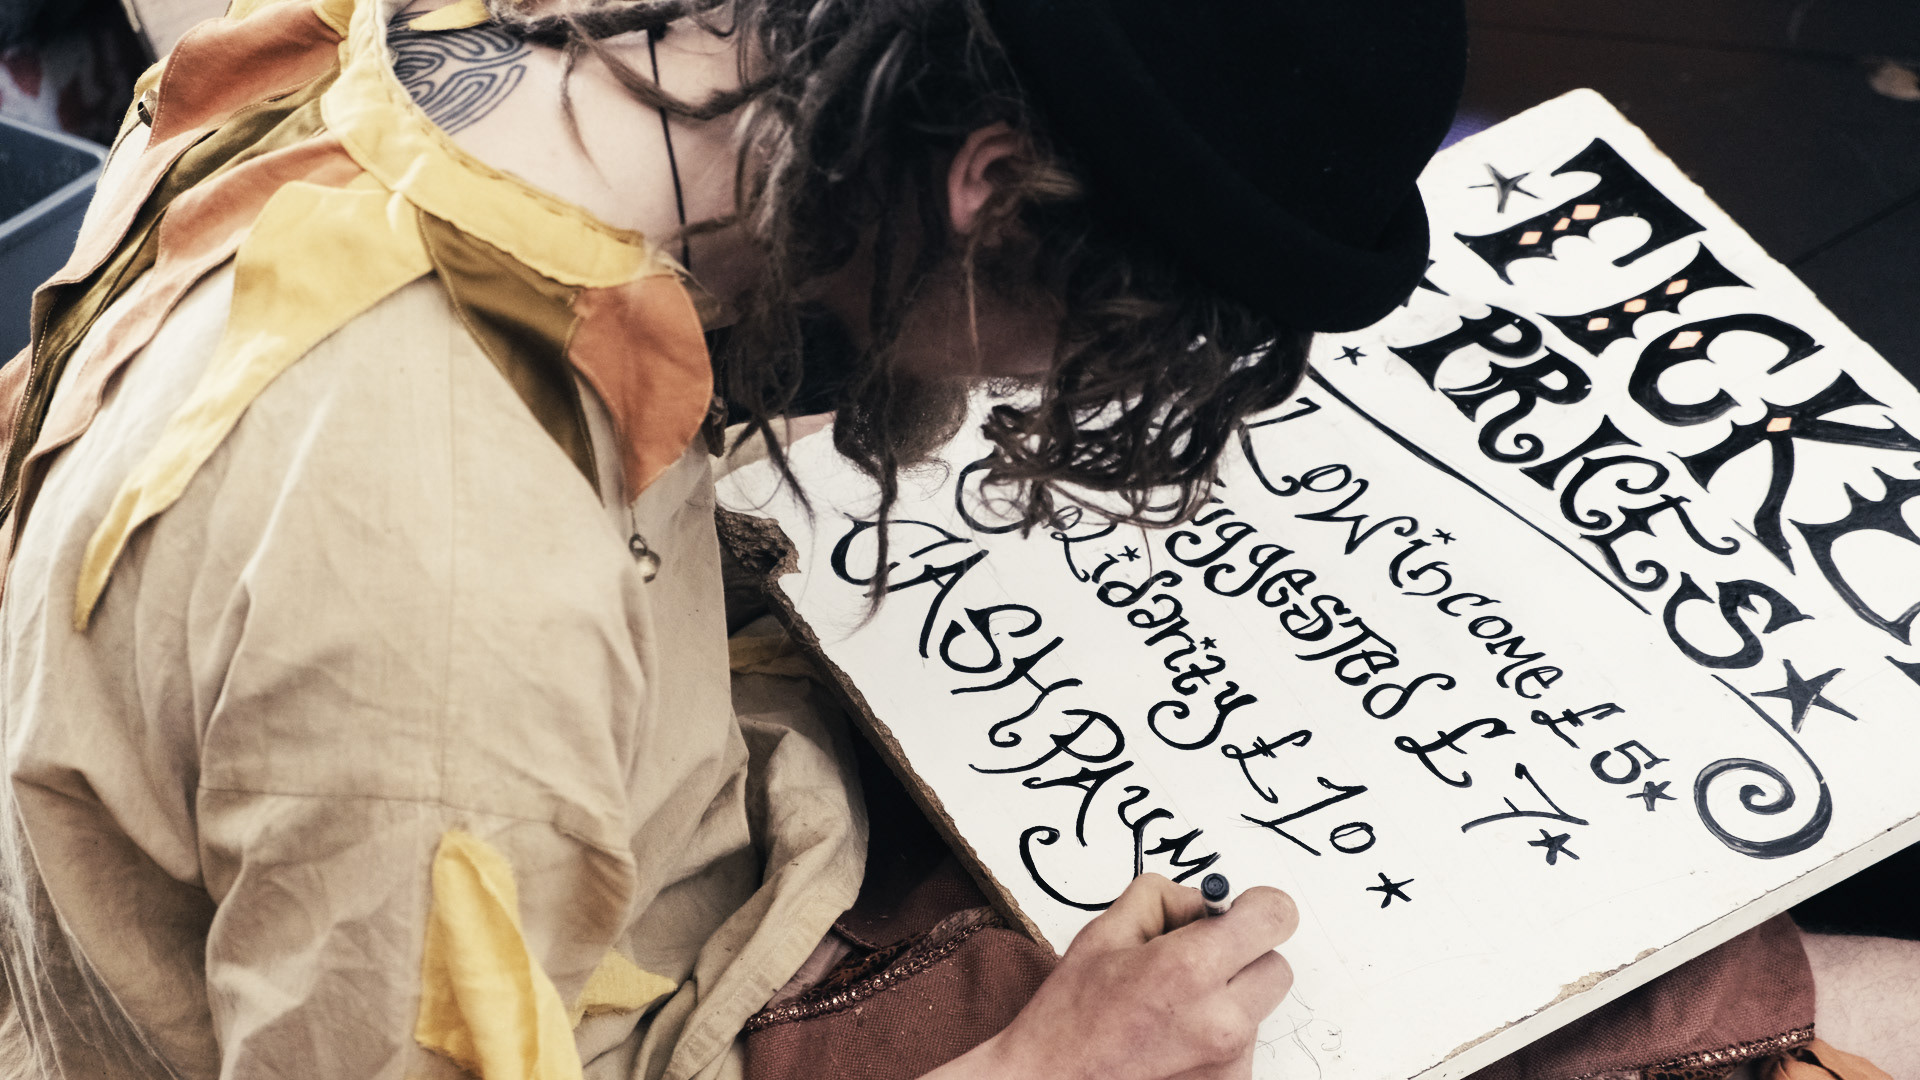 TICKE
PRICES
LOW income £5
uggesTed £7
Solidarity £10
CASH PAYM